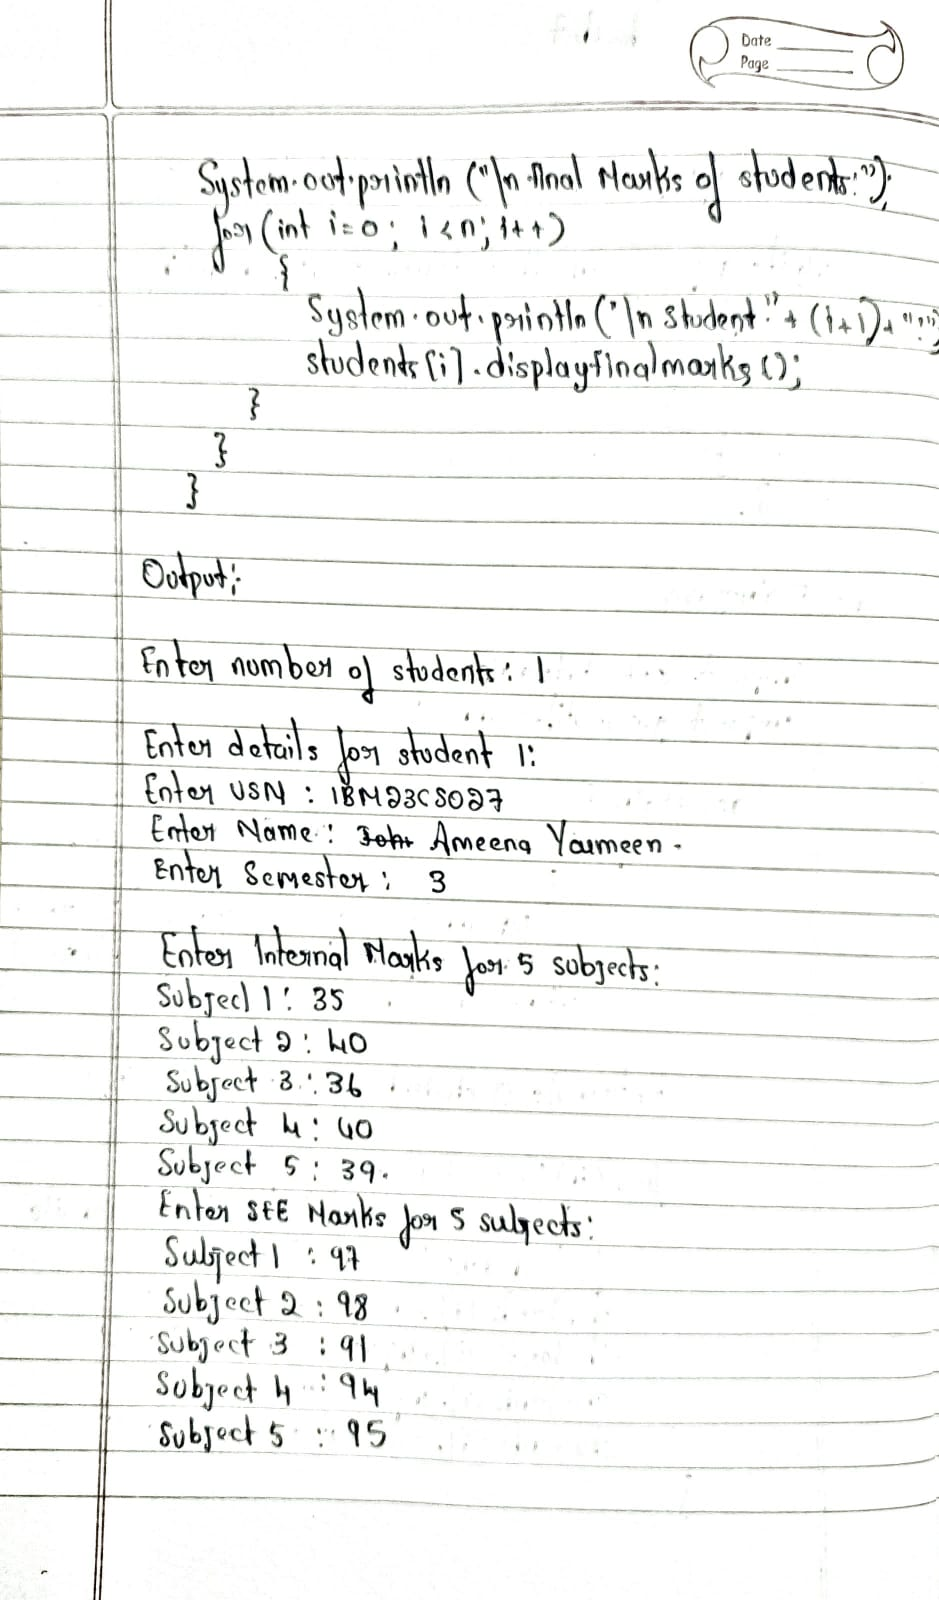 Date
Page
System.out.println ("\n final Marks of students:");
for (int i=0; i<n; i++)
{
System.out.println ("\n Student" + (i+1) + ":");
students[i].displayfinalmarks ();
}
}
}
Output:
Enter number of students: 1
Enter details for student 1:
Enter USN : 1BM23CS027
Enter Name: Ameena Yasmeen.
Enter Semester: 3
Enter Internal Marks for 5 subjects:
Subject 1: 35
Subject 2: 40
Subject 3: 36
Subject 4: 40
Subject 5: 39.
Enter SEE Marks for 5 subjects:
Subject 1 : 97
Subject 2 : 98
Subject 3 : 91
Subject 4 : 94
Subject 5 : 95